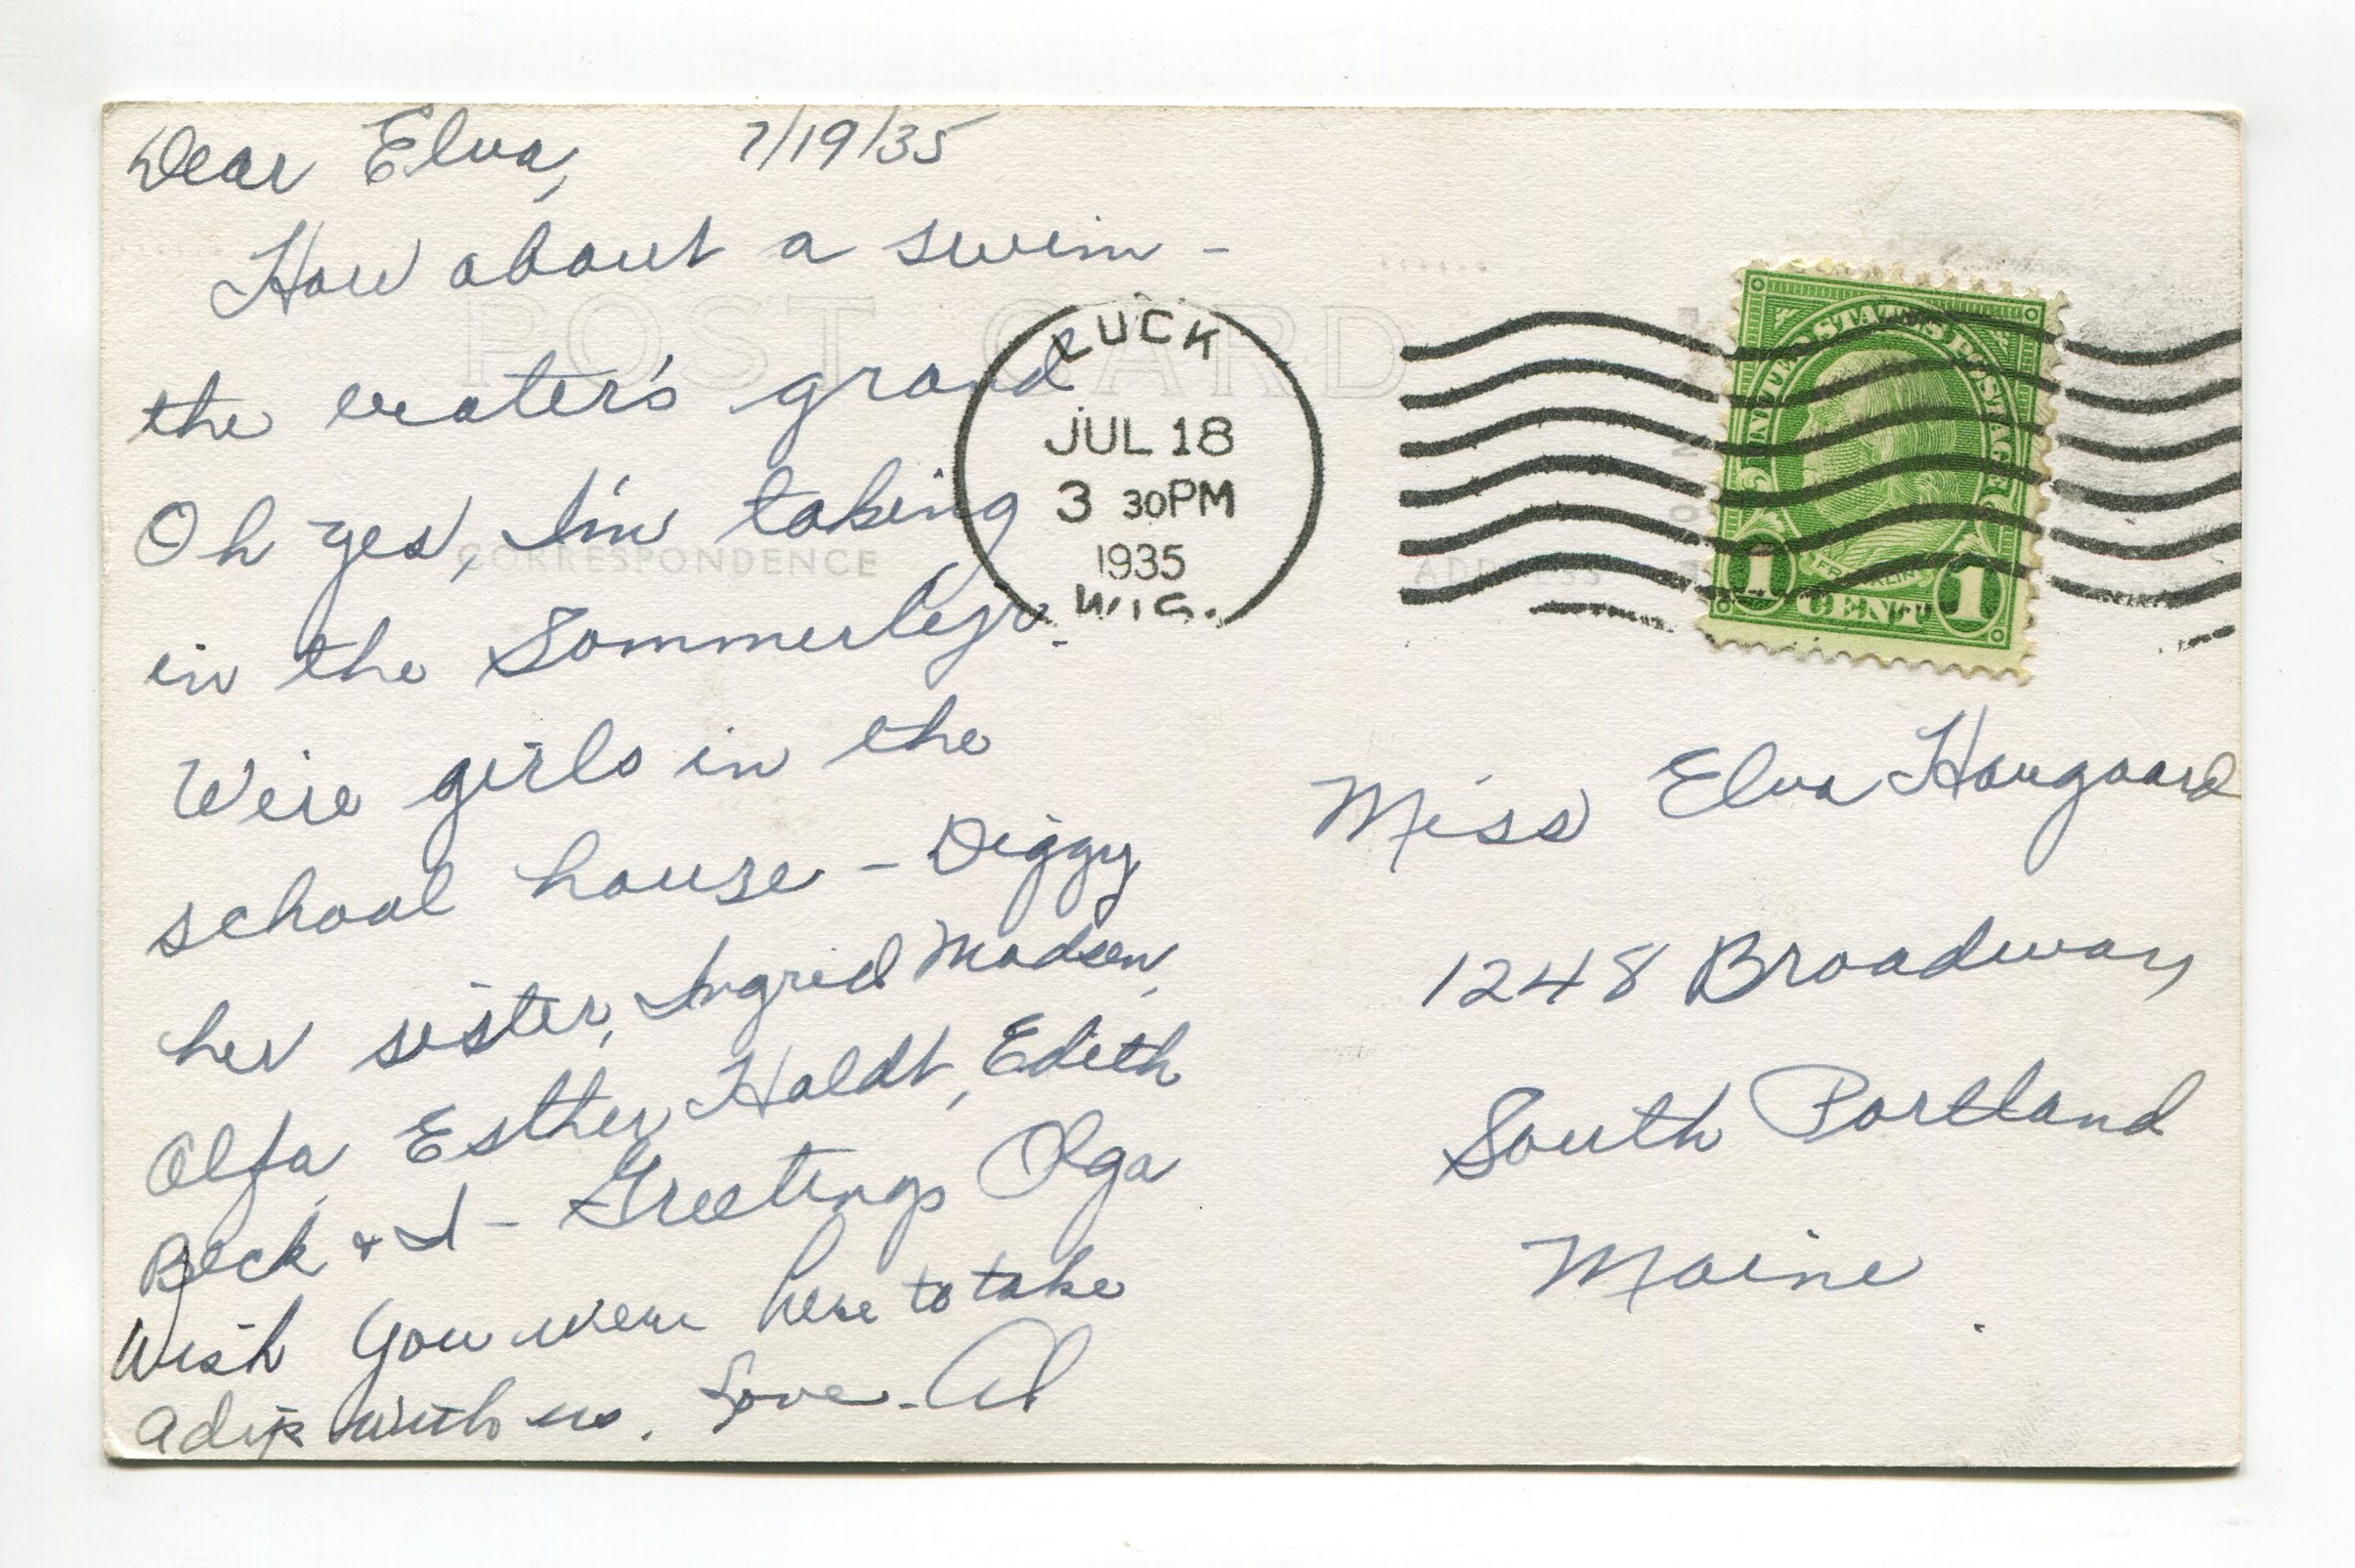 Dear Elva, 7/19/35
How about a swim -
the water's grand
Oh yes, I'm taking
in the Sommerlejr.
We're girls in the
school house - Diggy
her sister, Ingrid Madsen,
Olfa, Esther Holdt, Edith
Beck & I - Greetings Olga
Wish you were here to take
a dip with us. Love - Al
POST CARD
CORRESPONDENCE
ADDRESS
LUCK
JUL 18
3 30PM
1935
WIS.
UNITED STATES POSTAGE
FRANKLIN
1 CENT 1
Miss Elva Haugaard
1248 Broadway
South Portland
Maine